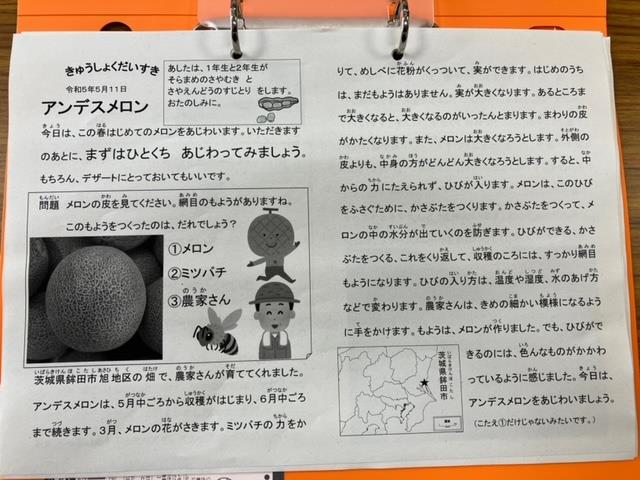 きゅうしょくだいすき
令和5年5月11日
アンデスメロン
あしたは、1年生と2年生が
そらまめのさやむき と
さやえんどうのすじとり をします。
おたのしみに。
今日は、この春はじめてのメロンをあじわいます。いただきます
のあとに、まずはひとくち あじわってみましょう。
もちろん、デザートにとっておいてもいいです。
問題 メロンの皮を見てください。網目のもようがありますね。
このもようをつくったのは、だれでしょう？
①メロン
②ミツバチ
③農家さん
茨城県鉾田市旭地区の畑で、農家さんが育ててくれました。
アンデスメロンは、5月中ごろから収穫がはじまり、6月中ごろ
まで続きます。3月、メロンの花がさきます。ミツバチの力をか
りて、めしべに花粉がくっついて、実ができます。はじめのうち
は、まだもようはありません。実が大きくなります。あるところま
で大きくなると、大きくなるのがいったんとまります。まわりの皮
がかたくなります。また、メロンは大きくなろうとします。外側の
皮よりも、中身の方がどんどん大きくなろうとします。すると、中
からの力にたえられず、ひびが入ります。メロンは、このひび
をふさぐために、かさぶたをつくります。かさぶたをつくって、メ
ロンの中の水分が出ていくのを防ぎます。ひびができる、かさ
ぶたをつくる、これをくり返して、収穫のころには、すっかり網目
もようになります。ひびの入り方は、温度や湿度、水のあげ方
などで変わります。農家さんは、きめの細かい模様になるよう
に手をかけます。もようは、メロンが作りました。でも、ひびがで
きるのには、色んなものがかかわ
っているように感じました。今日は、
アンデスメロンをあじわいましょう。
（こたえ①だけじゃないみたいです。）
茨城県鉾田市